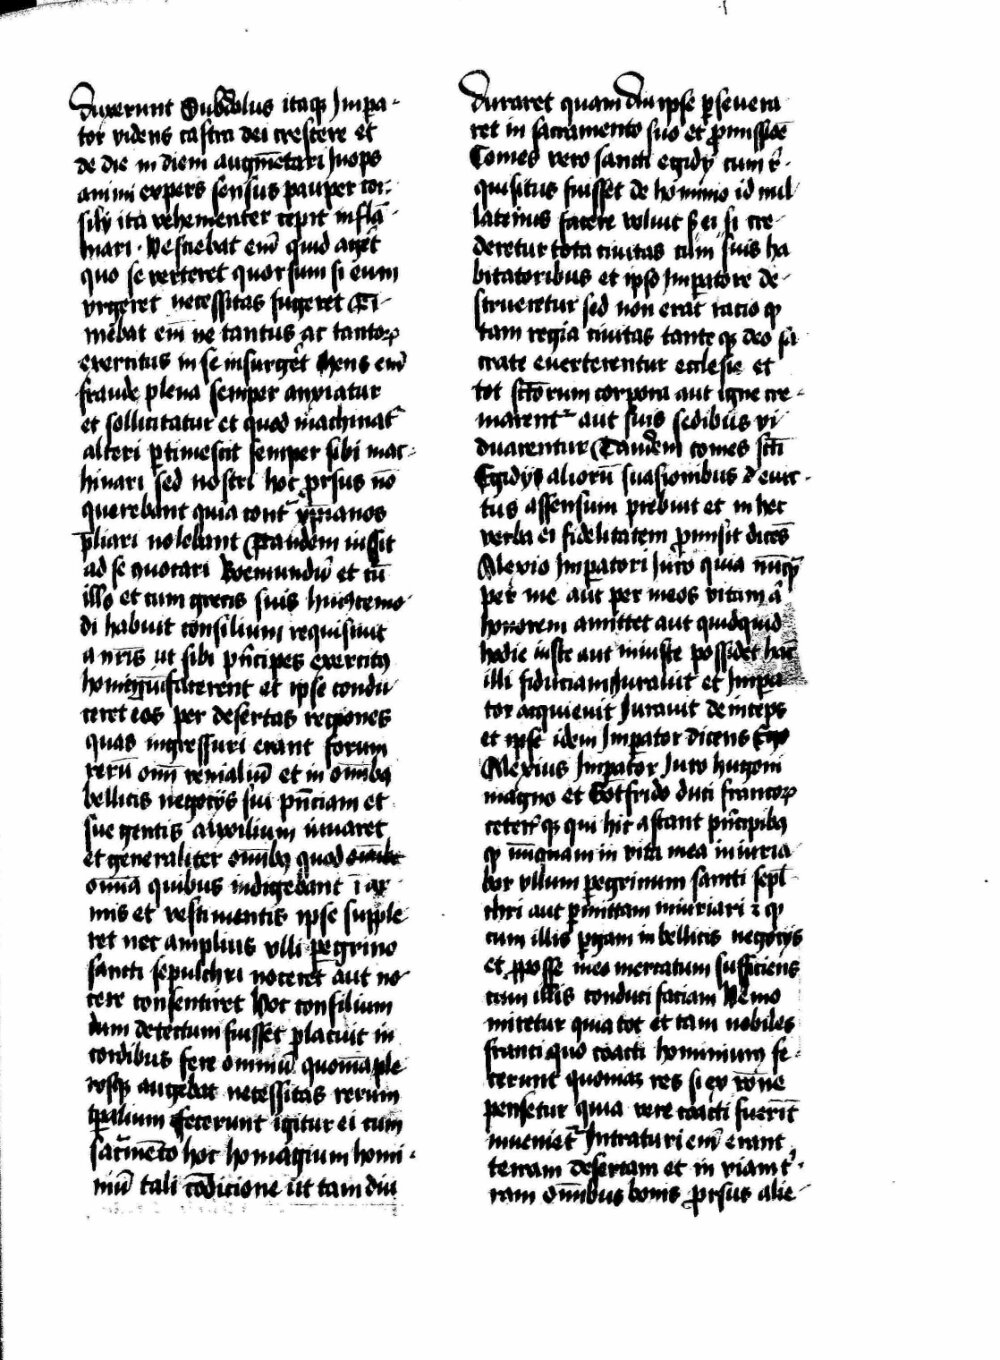 duxerunt Subdolus itaqꝫ Impa-
tor videns castra dei crescere et
de die in diem augm̄etari Inops
animi expers sensus pauper con-
silij ita vehementer cepit inflā-
mari . Nesciebat em̄ quid aget̄
quo se verteret quorsum si eum
vrgeret necessitas fugeret Ti-
mebat em̄ ne tantus ac tantoꝝ
exercitus in se insurget̄ Mens em̄
fraude plena semper anxiatur
et sollicitatur et quod machinat᷑
alteri ꝑtimescit semper sibi mac-
hinari sed nostri hoc ꝓrsus nō
querebant quia cont᷑ xp̄ianos
p̄liari nolebant Tandem iussit
ad se vocari Boemundū et cū
illo et cum grecis suis huiuscemo
di habuit consilium requisiuit
a nr̄is ut sibi pn̄cipes exercitꝰ
hominium facerent et ipse condu
ceret eos per desertas regiones
quas ingressuri erant forum
rerū om̄ venaliū et in om̄ibꝫ
bellicis negocijs sui pn̄ciam et
sue gentis auxilium iuuaret
et generaliter om̄ibꝫ quod om̄ibꝫ
om̄ia quibus indigebant ī ar
mis et vestimentis ipse supple
ret nec amplius vlli ꝑegrino
sancti sepulchri noceret aut no
cere consentiret Hoc consilium
dum detectum fuisset placuit in
cordibus fere omniū quoniā ple
rosqꝫ augebat necessitas rerum
tp̄alium Fecerunt igitur ei cum
sacᷓmēto hoc homagium homi-
niū tali cōdicione ut tam diu
duraret quam diu ipse ꝑseuera
ret in sacramento suo et ꝓmissiōe
Comes vero sancti egidij cum r̄-
quisitus fuisset de hominio id nul
latenus facere voluit s̄ ei si cre-
deretur tota ciuitas cum suis ha
bitatoribus et ipso Imperatore de-
strueretur sed non erat racio qꝫ
tam regia ciuitas tante qꝫ deo sa
crate euerterentur ecclesie et
tot sctōrum corpora aut igne cre-
marent᷑ aut suis sedibus vi
duarentur Tandem comes sctī
Egidijs aliorū suasionibus deuic-
tus assensum prebuit et in hec
verba ei fidelitatem ꝓmisit dices̄
Alexio Imperatori Iuro quia nūqꝫ
per me aut per meos vitam ā
honorem amittet aut quidquid
hodie iuste aut iniuste possidet hāc
illi fiduciam Iurauit et Impa
tor acquieuit Iurauit deinceps
et ipse idem Imperator dicens Ego
Alexius Imperator Iuro hugoni
magno et Gotfrido duci francoꝝ
ceter̄ qꝫ qui hic astant pn̄cipibꝫ
qꝫ nūquam in vita mea iniuria-
bor vllum ꝑegrinum sancti sepl̄
chri aut ꝑmittam iniuriari ⁊ qꝫ
cum illis ꝑgam in bellicis negocijs
et ꝓ posse meo mercatum sufficiens
cum illis conduci faciam Nemo
miretur quia tot et tam nobiles
franci quo coacti hominium fe-
cerunt quoniaꝫ res si ex rōne
pensetur quia vere coacti fuerīt
inueniet᷑ Intraturi em̄ erant
terram desertam et in viam t᷑-
ram om̄ibus bonis ꝓrsus alie-